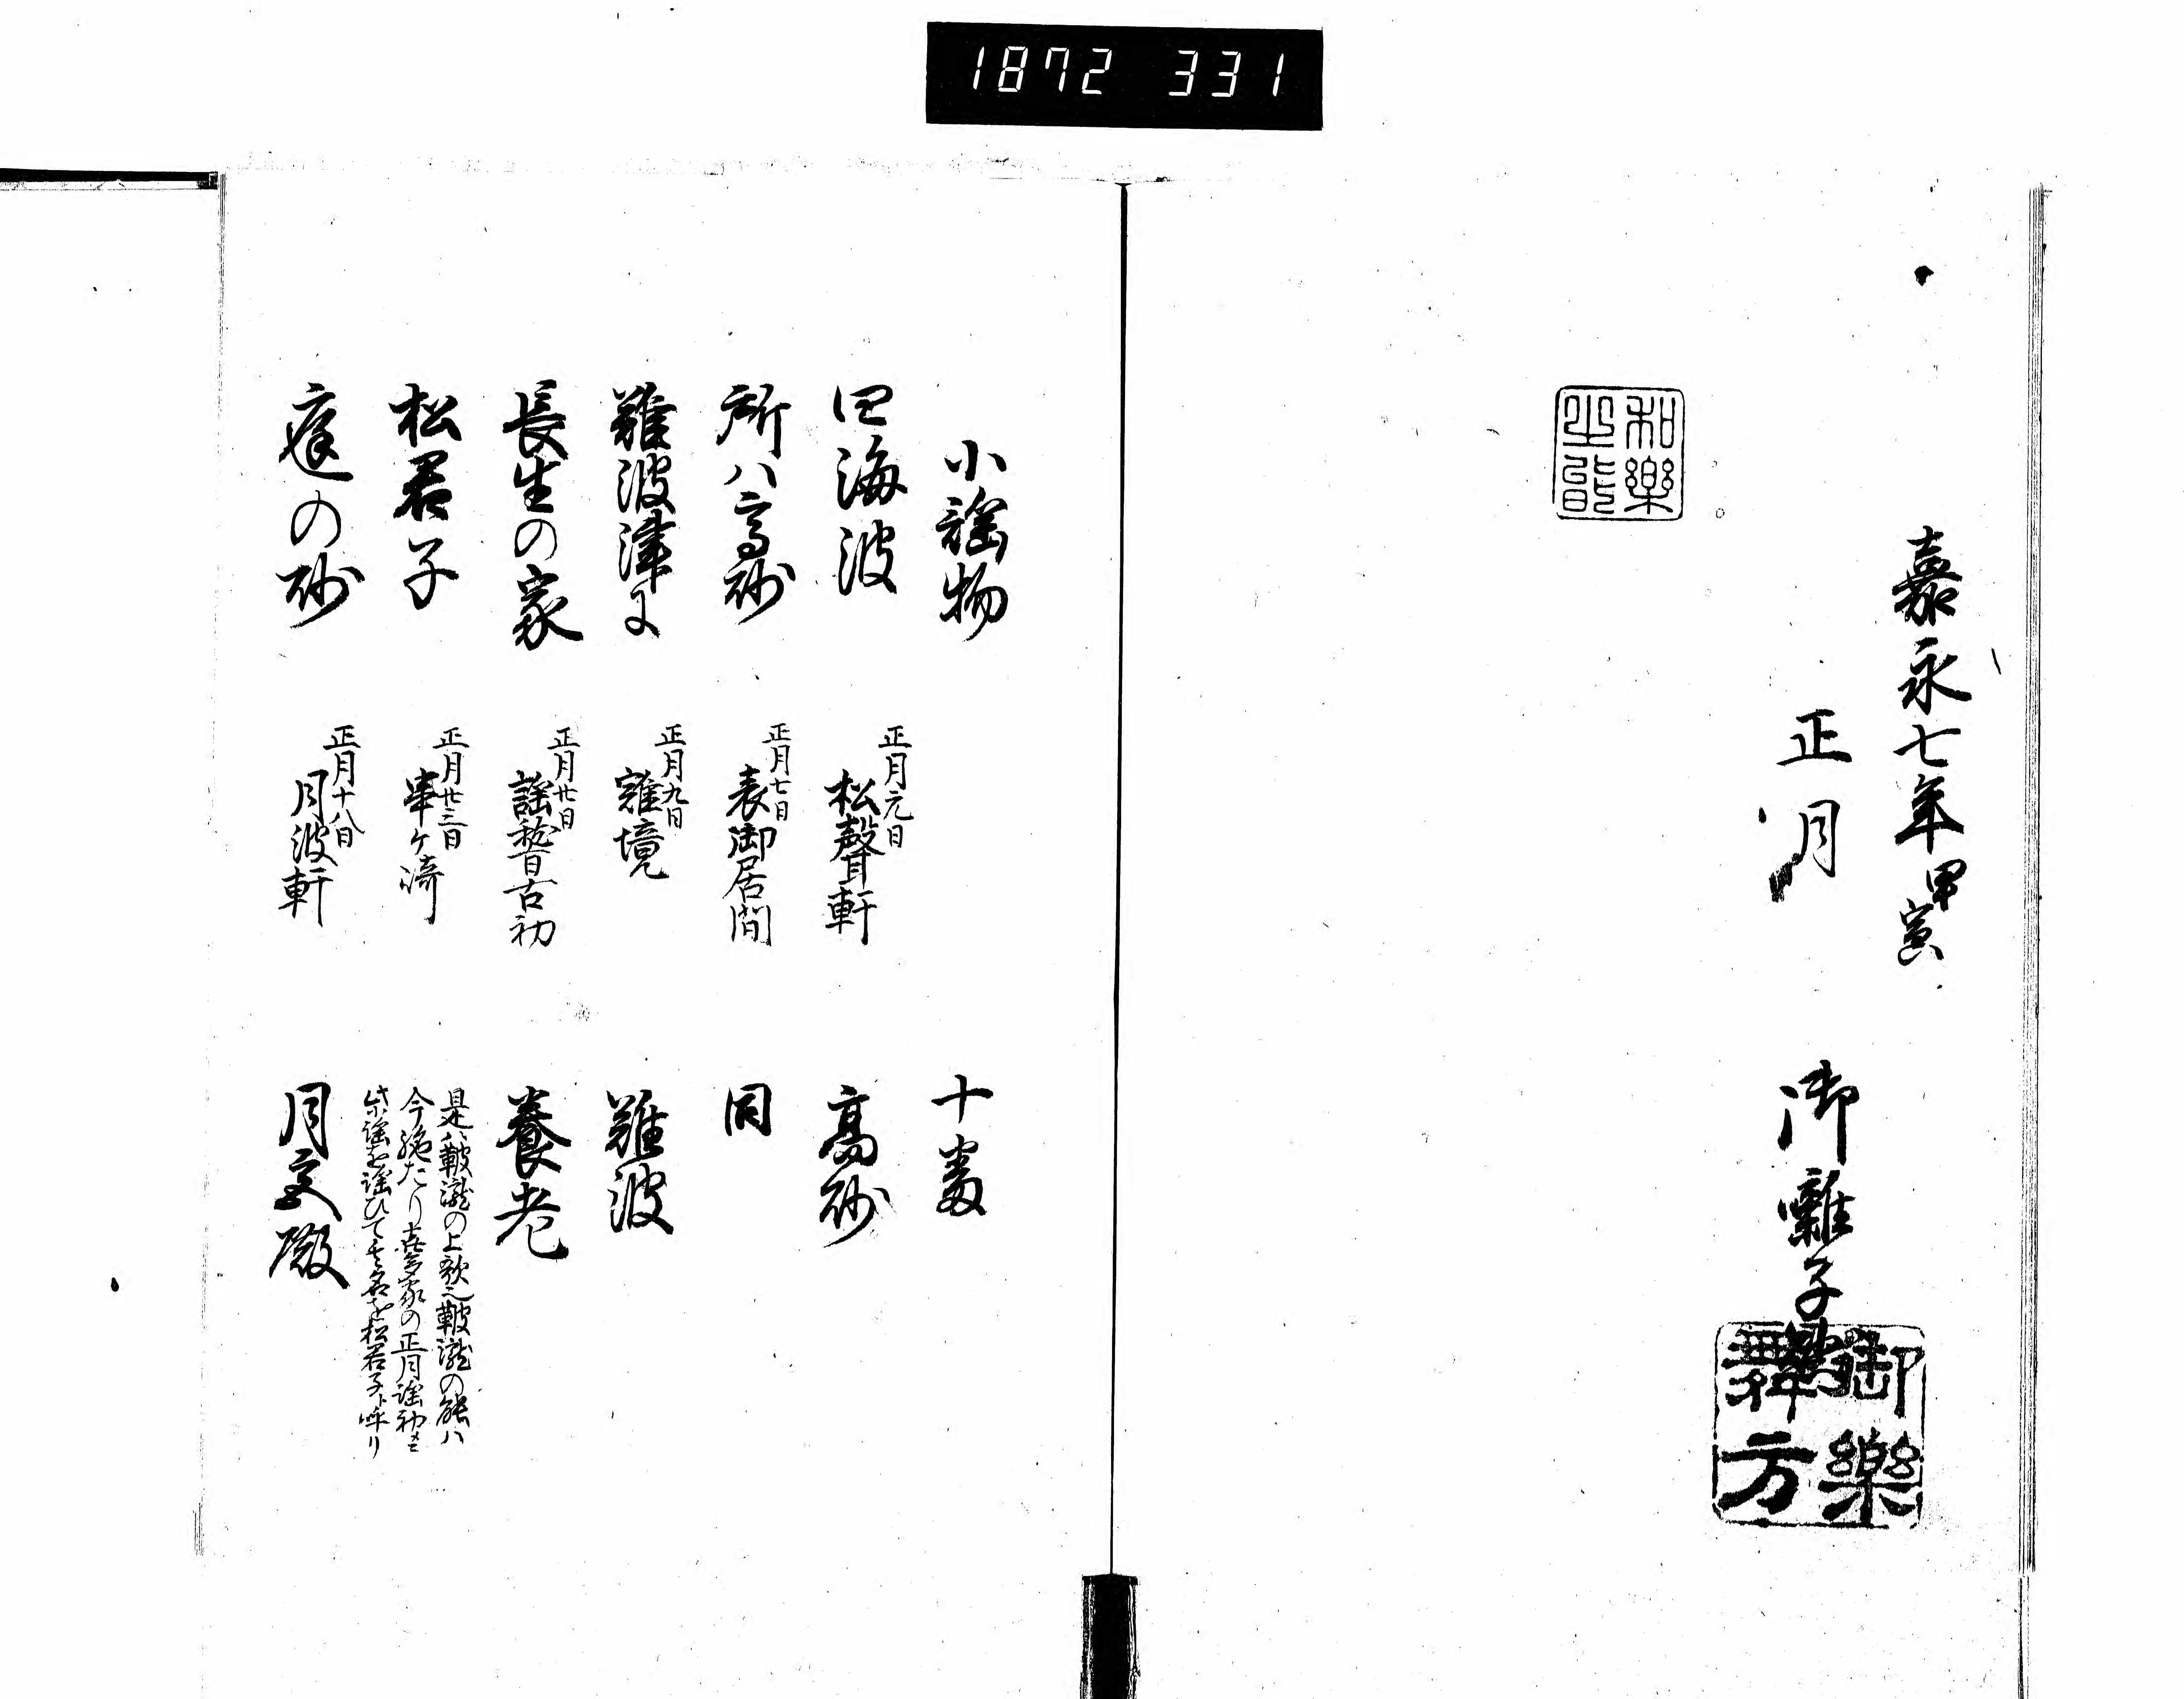 1872 331
嘉永七年甲寅
正月
御囃子
御樂
舞方
和樂
小謡物
十番
四海波
正月元日
松聲軒
高砂
所ハ高砂
正月七日
表御居間
同
難波津に
正月九日
雜境
難波
長生の家
正月廿日
謡稽古初
養老
松君子
正月廿三日
串ケ崎
是ハ鞁瀧の上歌也鞁瀧の能ハ
今絶たり喜多家の正月謡初ニ
此謡を謡ひて其名を松君子ト呼リ
庭の砂
正月十八日
月波軒
月宮殿